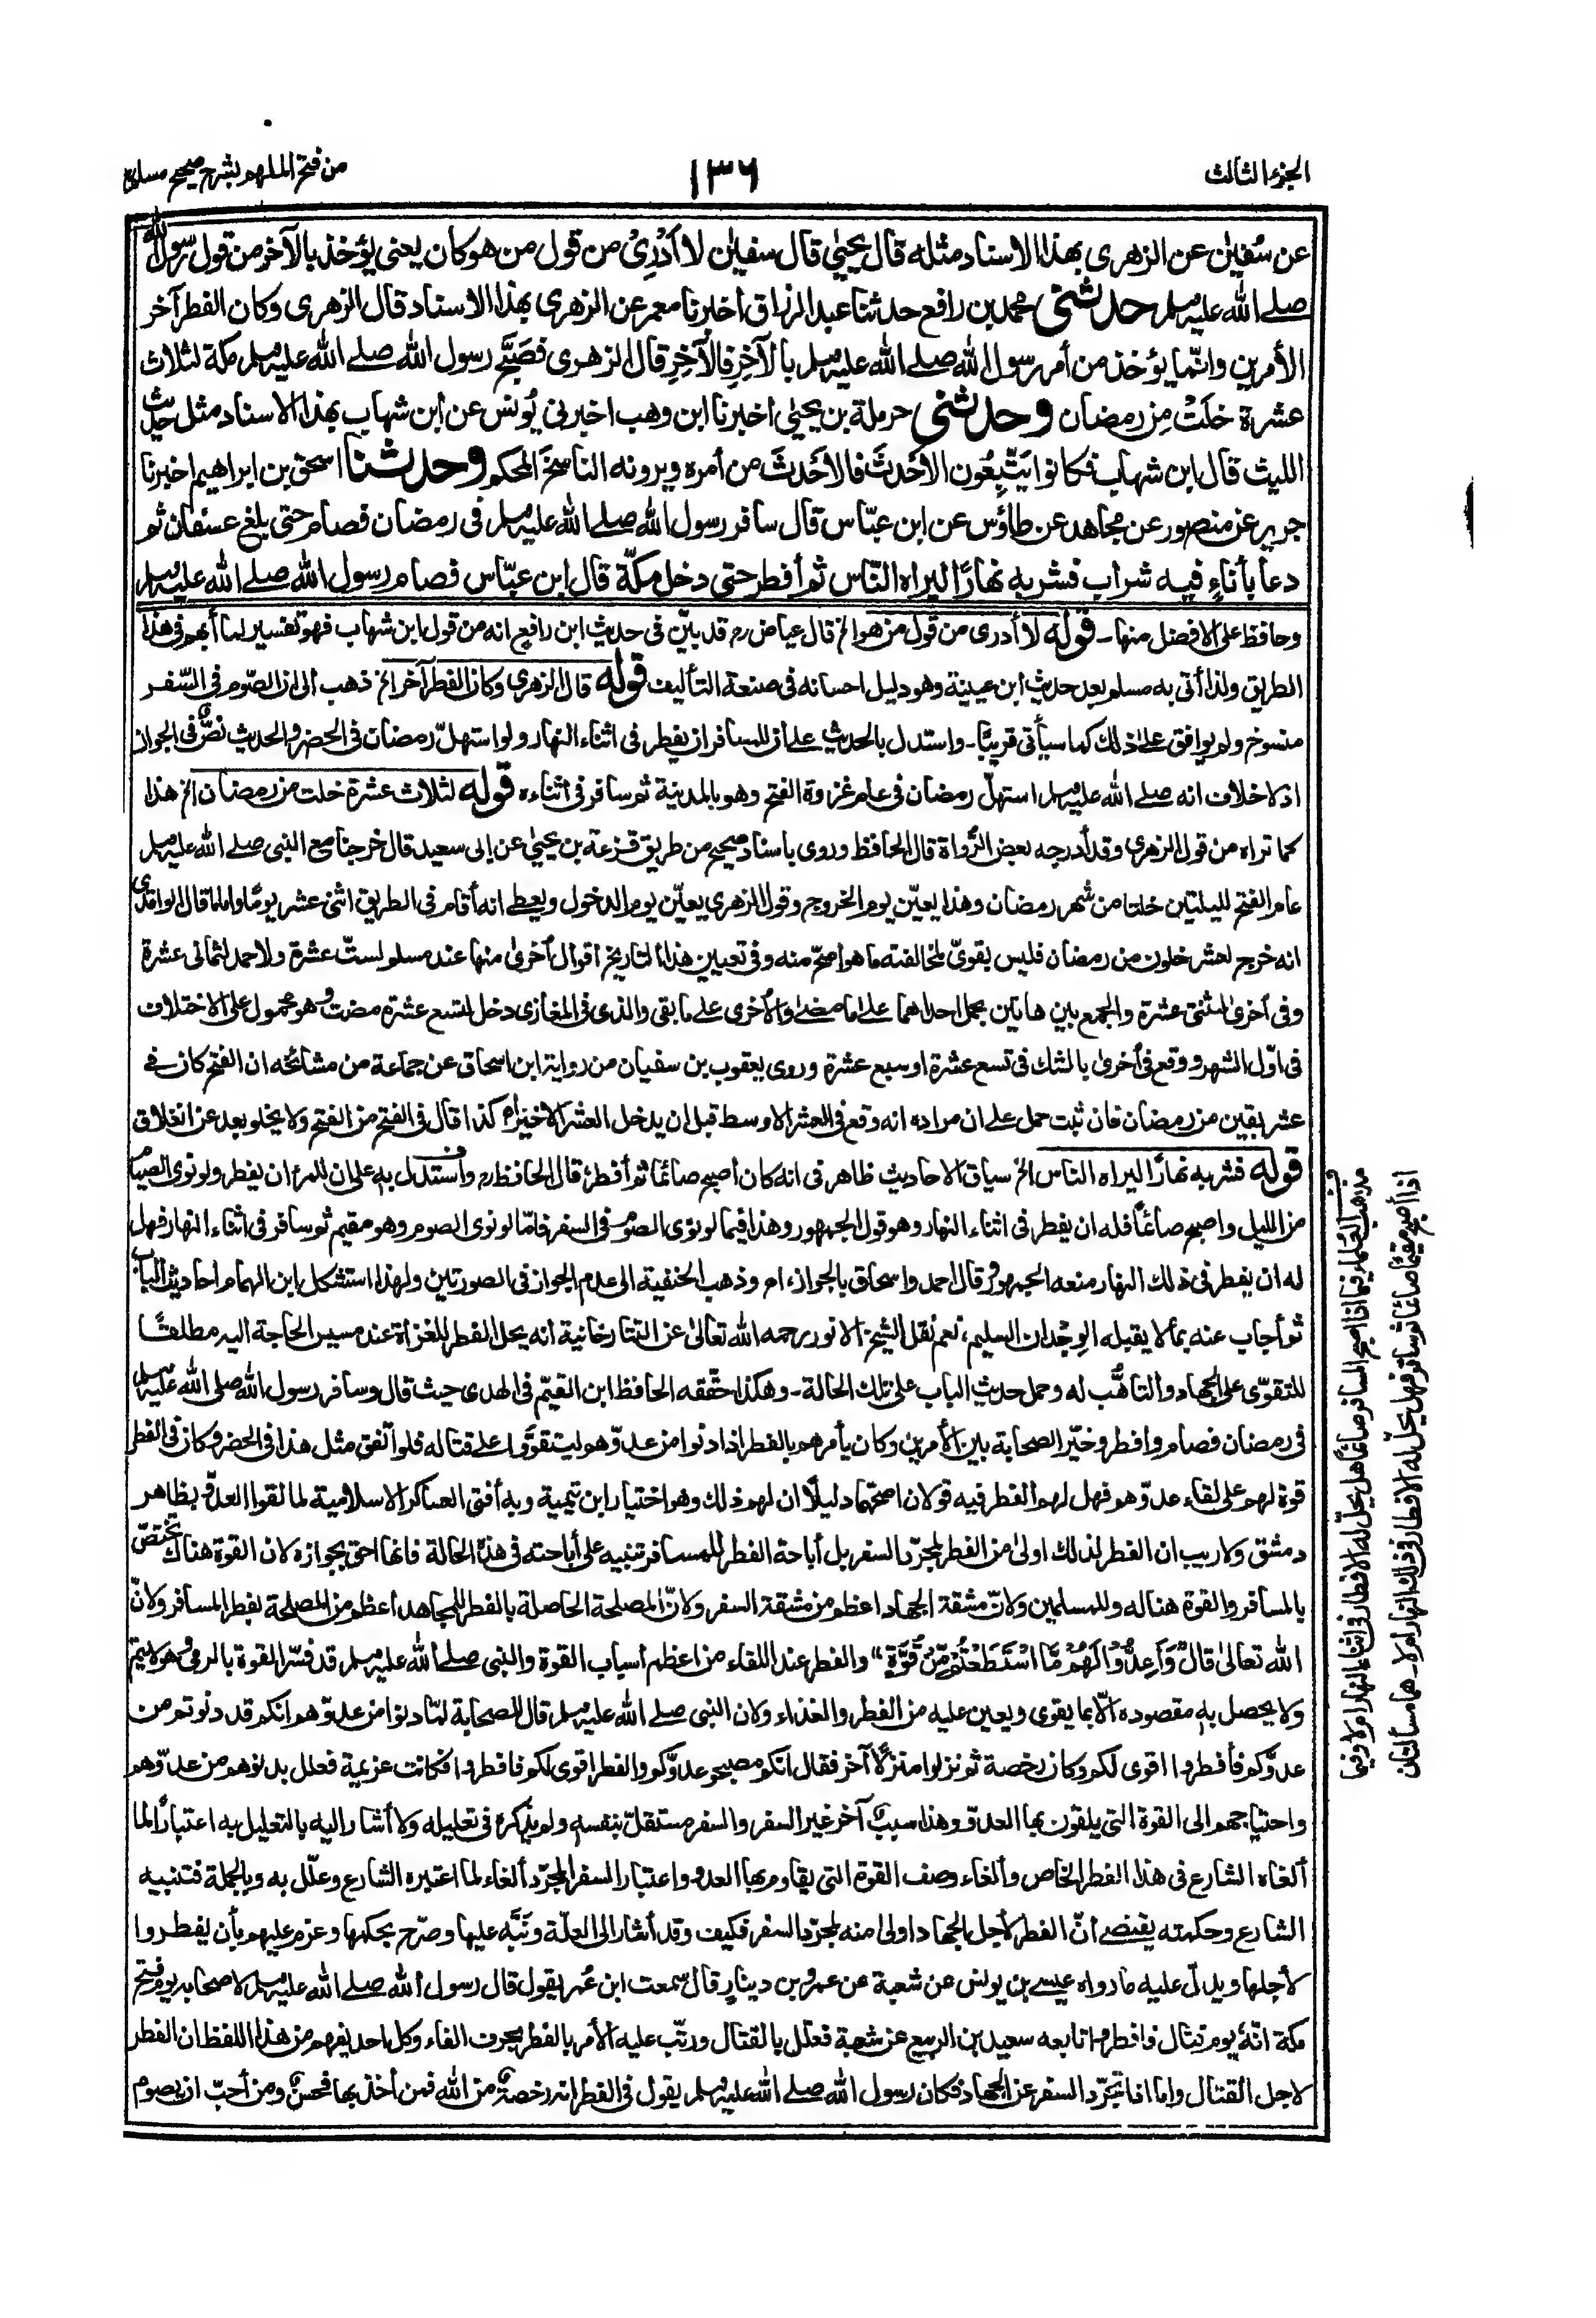 الجزء الثالث
١٣٦
من فتح الملهم بشرح صحيح مسلم
عن سُفيٰن عن الزهرى بهذا الاسناد مثله قال يحيٰي قال سفيٰن لا أَدْرِىْ من قول من هو كان يعنى يؤخذ بالآخر من قول رسول الله
صلے الله عليہ وسلم حدثنى محمد بن رافع حدثنا عبد الرزاق اخبرنا معمر عن الزهرى بهذا الاسناد قال الزهرى وكان الفطر آخر
الأمرين وانّما يؤخذ من أمر رسول الله صلے الله عليہ وسلم بالآخِرِ فالآخِرِ قال الزهرى فصَبَّح رسول الله صلے الله عليہ وسلم مكة لثلاث
عشرة خلَتْ مِن رمضان وحدثنى حرملة بن يحيٰى اخبرنا ابن وهب اخبرنى يُونس عن ابن شهاب بهذا الاسناد مثل حديث
الليث قال ابن شهاب فكانوا يَتَّبِعُون الأحْدَثَ فالأحْدَثَ من أمره ويرونه الناسخَ المحكم وحدثنا اسحق بن ابراهيم اخبرنا
جرير عن منصور عن مجاهد عن طاؤس عن ابن عبّاس قال سافر رسول الله صلے الله عليہ وسلم فى رمضان فصام حتى بلغ عسفان ثم
دعا بأناءٍ فيه شراب فشربه نهارًا ليراه النّاس ثم أفطر حتى دخل مكّة قال ابن عبّاس فصام رسول الله صلے الله عليہ وسلم
وحافظ على الافضل منها۔ قوله لا أدرى من قول من هو الخ قال عياض رح قد بيّن فى حديث ابن رافع انه من قول ابن شهاب فهو تفسير لما أبهم فى هذا
الطريق ولذا أتى به مسلم بعد حديث ابن عيينة وهو دليل احسانه فى صنعة التأليف قوله قال الزهرى وكان الفطر آخر الخ ذهب الى ان الصّوم فى السّفر
منسوخ ولم يوافق علے ذلك كما سيأتى قريبًا۔ واستدل بالحديث علے ان للمسافر ان يفطر فى اثناء النهار ولو استهلّ رمضان فى الحضر والحديث نصٌّ فى الجواز
اذ لا خلاف انه صلے الله عليہ وسلم استهلّ رمضان فى عام غزوة الفتح وهو بالمدينة ثم سافر فى أثناءه قوله لثلاث عشرة خلت من رمضان الخ هذا
كما تراه من قول الزهرى وقد أدرجه بعض الرُّواة قال الحافظ وروى باسناد صحيح من طريق قزعة بن يحيٰي عن ابى سعيد قال خرجنا مع النبى صلے الله عليہ وسلم
عام الفتح لليلتين خلتا من شهر رمضان وهذا يعيّن يوم الخروج وقول الزهرى يعيّن يوم الدخول ويعطے انه أقام فى الطريق اثنى عشر يومًا واما ما قال الواقدى
انه خرج لعشر خلون من رمضان فليس بقوىّ لمخالفته ما هو اصحّ منه وفى تعيين هذا التاريخ اقوال أخرى منها عند مسلم لستّ عشرة ولاحمد لثمانى عشرة
وفى أخرى لثنتى عشرة والجمع بين هاتين بحمل احداهما علے ما مضے والأخرى علے ما بقى والذى فى المغازى دخل لتسع عشرة مضت وهو محمول على الاختلاف
فى اوّل الشهر ووقع فى أخرى بالشك فى تسع عشرة او سبع عشرة وروى يعقوب بن سفيان من رواية ابن اسحاق عن جماعة من مشائخه ان الفتح كان فے
عشر بقين من رمضان فان ثبت حمل على ان مراده انه وقع فى العشر الاوسط قبل ان يدخل العشر الاخير اھ كذا قال فى الفتح من الفتح ولا يخلو بعد عن انغلاق
قوله فشربه نهارًا ليراه الناس الخ سياق الاحاديث ظاهر فى انه كان أصبح صائمًا ثم أفطر، قال الحافظ رح واستدل به على ان للمرء ان يفطر ولو نوى الصيام
من الليل واصبح صائمًا فله ان يفطر فى اثناء النهار وهو قول الجمهور وهذا فيما لو نوى الصوم فى السفر فامّا لو نوى الصوم وهو مقيم ثم سافر فى اثناء النهار فهل
له ان يفطر فى ذلك النهار منعه الجمهور وقال احمد واسحاق بالجواز، اھ وذهب الحنفية الى عدم الجواز فى الصورتين ولهذا استشكل ابن الهمام احاديث الباب
ثم أجاب عنه بما لا يقبله الوِجْدان السليم، نعم نقل الشيخ الانور رحمه الله تعالىٰ عن التتارخانية أنه يحل الفطر للغزاة عند مسيس الحاجة اليه مطلقًا
للتقوّى على الجهاد والتأهُّب له وحمل حديث الباب على تلك الحالة۔ وهكذا حقّقه الحافظ ابن القيّم فى الهدى حيث قال وسافر رسول الله صلى الله عليہ وسلم
فى رمضان فصام وافطر وخيّر الصحابة بين الأمرين وكان يأمرهم بالفطر اذا دنوا من عدوّهم ليتقوّوا علے قتاله فلو اتفق مثل هذا فى الحضر وكان فى الفطر
قوة لهم على لقاء عدوّهم فهل لهم الفطر فيه قولان اصحّهما دليلًا ان لهم ذلك وهو اختيار ابن تيمية وبه أفتى العساكر الاسلامية لما لقوا العدوّ بظاهر
دمشق ولا ريب ان الفطر لذلك اولىٰ من الفطر لمجرّد السفر بل أباحة الفطر للمسافر تنبيه على أباحته فى هذه الحالة فانها احق بجوازه لان القوة هناك تختصّ
بالمسافر والقوة هنا له وللمسلمين ولانّ مشقة الجهاد اعظم من مشقة السفر ولانّ المصلحة الحاصلة بالفطر للمجاهد أعظم من المصلحة بفطر المسافر ولانّ
الله تعالىٰ قال "وَأَعِدُّوْا لَهُمْ مَّا اسْتَطَعْتُمْ مِّنْ قُوَّةٍ" والفطر عند اللقاء من اعظم أسباب القوة والنبى صلے الله عليہ وسلم قد فسّر القوة بالرمى وهو لا يتم
ولا يحصل به مقصوده الّا بما يقوى ويعين عليه من الفطر والغذاء ولان النبى صلے الله عليہ وسلم قال للصحابة لمّا دنوا من عدوّهم انكم قد دنوتم من
عدوّكم فأفطروا اقوى لكم وكان رخصة ثم نزلوا منزلًا آخر فقال انكم مصبحو عدوّكم والفطر اقوى لكم فافطروا فكانت عزيمة فعلل بدنوهم من عدوّهم
واحتياجهم الى القوة التى يلقون بها العدوّ وهذا سببٌ آخر غير السفر والسفر مستقلّ بنفسه ولم يذكره فى تعليله ولا أشار اليه بالتعليل به اعتبارًا لما
ألغاه الشارع فى هذا الفطر الخاص وألغاء وصف القوة التى يقاوم بها العدو واعتبار السفر المجرّد ألغاء لما اعتبره الشارع وعلّل به وبالجملة فتنبيه
الشارع وحكمته يقتضے أنّ الفطر لأجل الجهاد اولى منه لمجرّد السفر فكيف وقد أشار الى العلّة ونَبَّه عليها وصرّح بحكمها وعزم عليهم بأن يفطروا
لأجلها ويدلّ عليه ما رواه عيسے بن يونس عن شعبة عن عمرو بن دينار قال سمعت ابن عُمر يقول قال رسول الله صلے الله عليہ وسلم لاصحابه يوم فتح
مكة انّهٗ يوم قتال فافطروا تابعه سعيد بن الربيع عن شعبة فعلل بالقتال ورتّب عليه الأمر بالفطر بحرف الفاء وكل احد يفهم من هذا اللفظ ان الفطر
لاجل القتال واما اذا تجرّد السفر عن الجهاد فكان رسول الله صلے الله عليہ وسلم يقول فى الفطر انه رخصةٌ من الله فمن أخذ بها فحسنٌ ومن أحبّ ان يصوم
مذهب العُلماء فيما اذا اصبح المسافر صائمًا هل يحلّ له الافطار فى اثناء النهار ام لا وفيما
اذا أصبح مقيمًا صائمًا ثم سافر فهل يحلّ له الافطار فى ذلك النهار ام لا۔ هما مسألتان